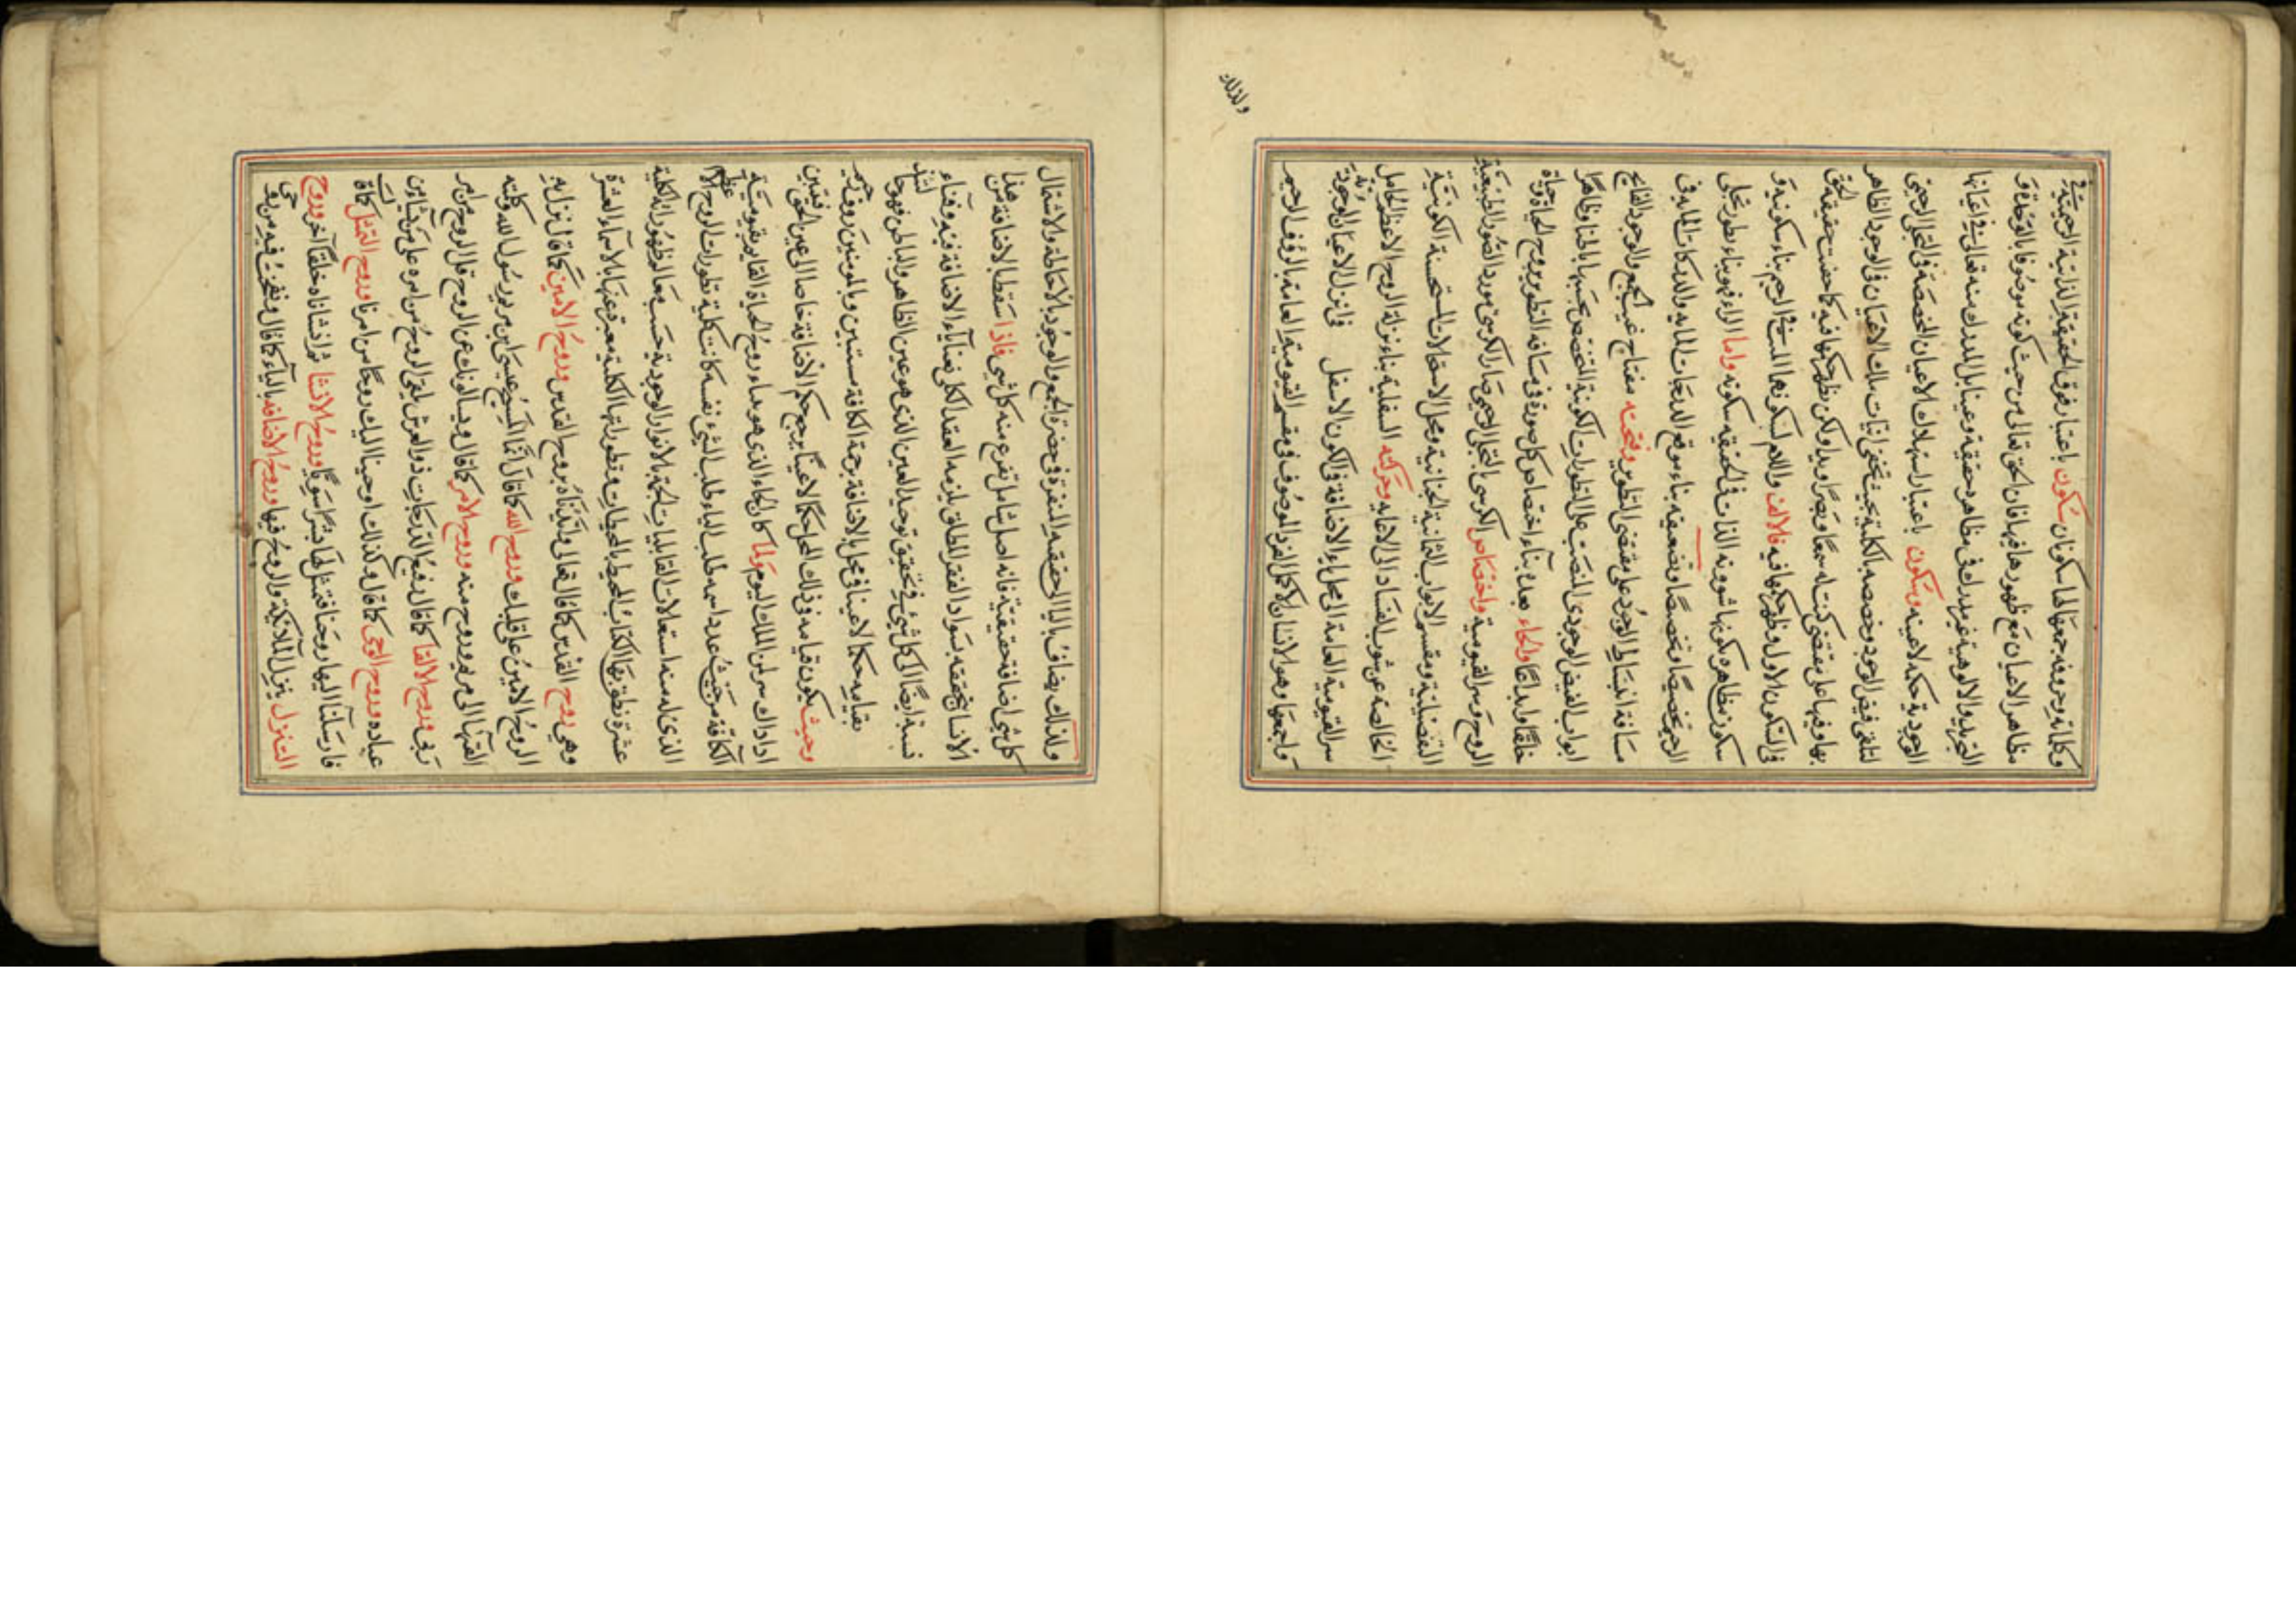 وكلماته وحروفه جمعها لها سكونان سكون باعتبار فوق الحقيقة الذاتية الرحيمية في
مظاهر الاعيان مع ظهورها فيها فان الحق تعالى من حيث كونه موصوفا بالوحدة و
التجريد والالوهية غير مدرك في مظاهره حقيقة وعينا بل المدرك منه تعالى في اعيانها
الوجودية حكمه لا عينه وسكون باعتبار استهلاك الاعيان المخصصة في التجلى الرحيمى
لتلقى فيض الوجود وخصصه بالكلية بحيث تخفى انيات تلك الاعيان في الوجود الظاهر
بها وفيها على مقتضى كنت له سمعا وبصرا ويدا ولكن يظهر حكمها فيه كما خفيت حقيقة الحق
في السكون الاول وظهر حكمها فيه فالالف واللام لسكونهما النسخ في الرحيم بناء سكونيه و
سكون مظاهره كونها شوونه الذات في الحقيقه سكونه واما الراء فهو بناء بطور تجلى
الرحيم تخصيصا وتخصصا وتضعيفه بناء موقع الدرجات المايه والدركات المايه في
مسافة انبساط الوجود على مقتضى التطوير وفتحته مفتاح غيب الجمع والوجود الفاتح
ابواب الفيض الوجودى المنصب على التطورات الكونية المختص بحبسها باطنا وظاهرا
خلقا وابداعا والحاء بعدان بناء اختصاص كل صورة في مسافه التطوير بروح الحياة وحياة
الروح وسر القيومية واختصاص الكرسى التجلى الرحيمى صار الكرسى مورد الصور الطبيعية
التفضيلية ومقسم الابواب الثمانية الجنانية ومحل الاستحالات المستحسنة الكونية
الخالصة عن شوب الفساد الى الاغايه وحركته السفلية بناء نزلة الروح الاعظم الحامل
سر القيومية العامة الى محل ياء الاضافة في الكون الاسفل في انزل الاعيان الوجودية
واجمعها وهو الانسان الاكمل الفرد الموصوف في مقسم القيومية العامة بالرؤف الرحيم
ولذلك
ولذلك يضاف باليا الحقيقه المنفردة في حضرة الجمع والوجود بالاحاطة والاشتمال
كل شى اضافة حقيقية فانه اصل شامل تفرع منه كل شى فاذا سقطا الاضافة من هذا
الانسان بتحققه بسواد الفقر المطلق يلزمه العقد الكلى فمنا ياء الاضافة فيه وفناء
نسبة ايضا الى كل شئ في تحقيق توحيد العين الذى هو عين الظاهر والباطن فهو حا لتئذ
بقيامه حكما لا عينا في محل يا الاضافة برحمة الكافة مستبين وبالمؤمنين رؤف رحيم
وحيث يكون قيامه في ذلك المحل حكما لا عينا يرجع حكم الاضافة خاصا الى عين الحق فيتبين
اذا ذاك سر لمن الملك اليوم ولما كان الحاء الذى هو مداء روح الحياة القايم بقيومية
الكافة من حيث عدد اسمه طلب الياء طلب الشئ نفسه كانت كلية تطورات الروح الا عظم
الذى له منه استعلات القابليات الجمة بالانوار الوجودية حسب معالم الظهورانه الكلية
عشرة نطق بها الكتاب المحيط بالمحيطات وتطوراتها الكلية معبر عنها بالاسماء العشرة
وهى روح القدس كما قال تعالى وايدناه بروح القدس وروح الامين كما قال نزل به
الروح الامين على قلبك وروح الله كما قال انما المسيح عيسى ابن مريم رسول الله وكلمته
القيها الى مريم وروح منه وروح الامر كما قال ويسالونك عن الروح قل الروح من امر
ربى وروح الالقا كما قال رفيع الدرجات ذو العرش يلقى الروح من امره على من يشاء من
عباده وروح الوحى كما قال وكذلك اوحينا اليك روحا من امرنا وروح التمثل كما قال
فارسلنا اليها روحنا فتمثل لها بشرا سويا وروح الانشا ثم انشاناه خلقا آخر وروح
التنزل ينزل الملائكة والروح فيها وروح الاضافه بالياء كما قال ونفخت فيه من روحى